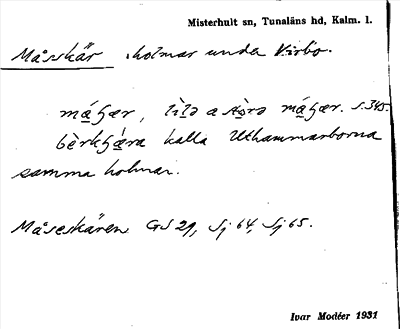 Misterhult sn, Tunaläns hd, Kalm. l.
Måsskär, holmar under Virbo.
må̱ʃær, lìlə a stò̱rə må̱ʃær. s. 345.
bèrkʃǽ̱ra kalla Uthammarborna
samma holmar.
Måseskären GS 29, Sj 64, Sj 65.
Ivar Modéer 1931